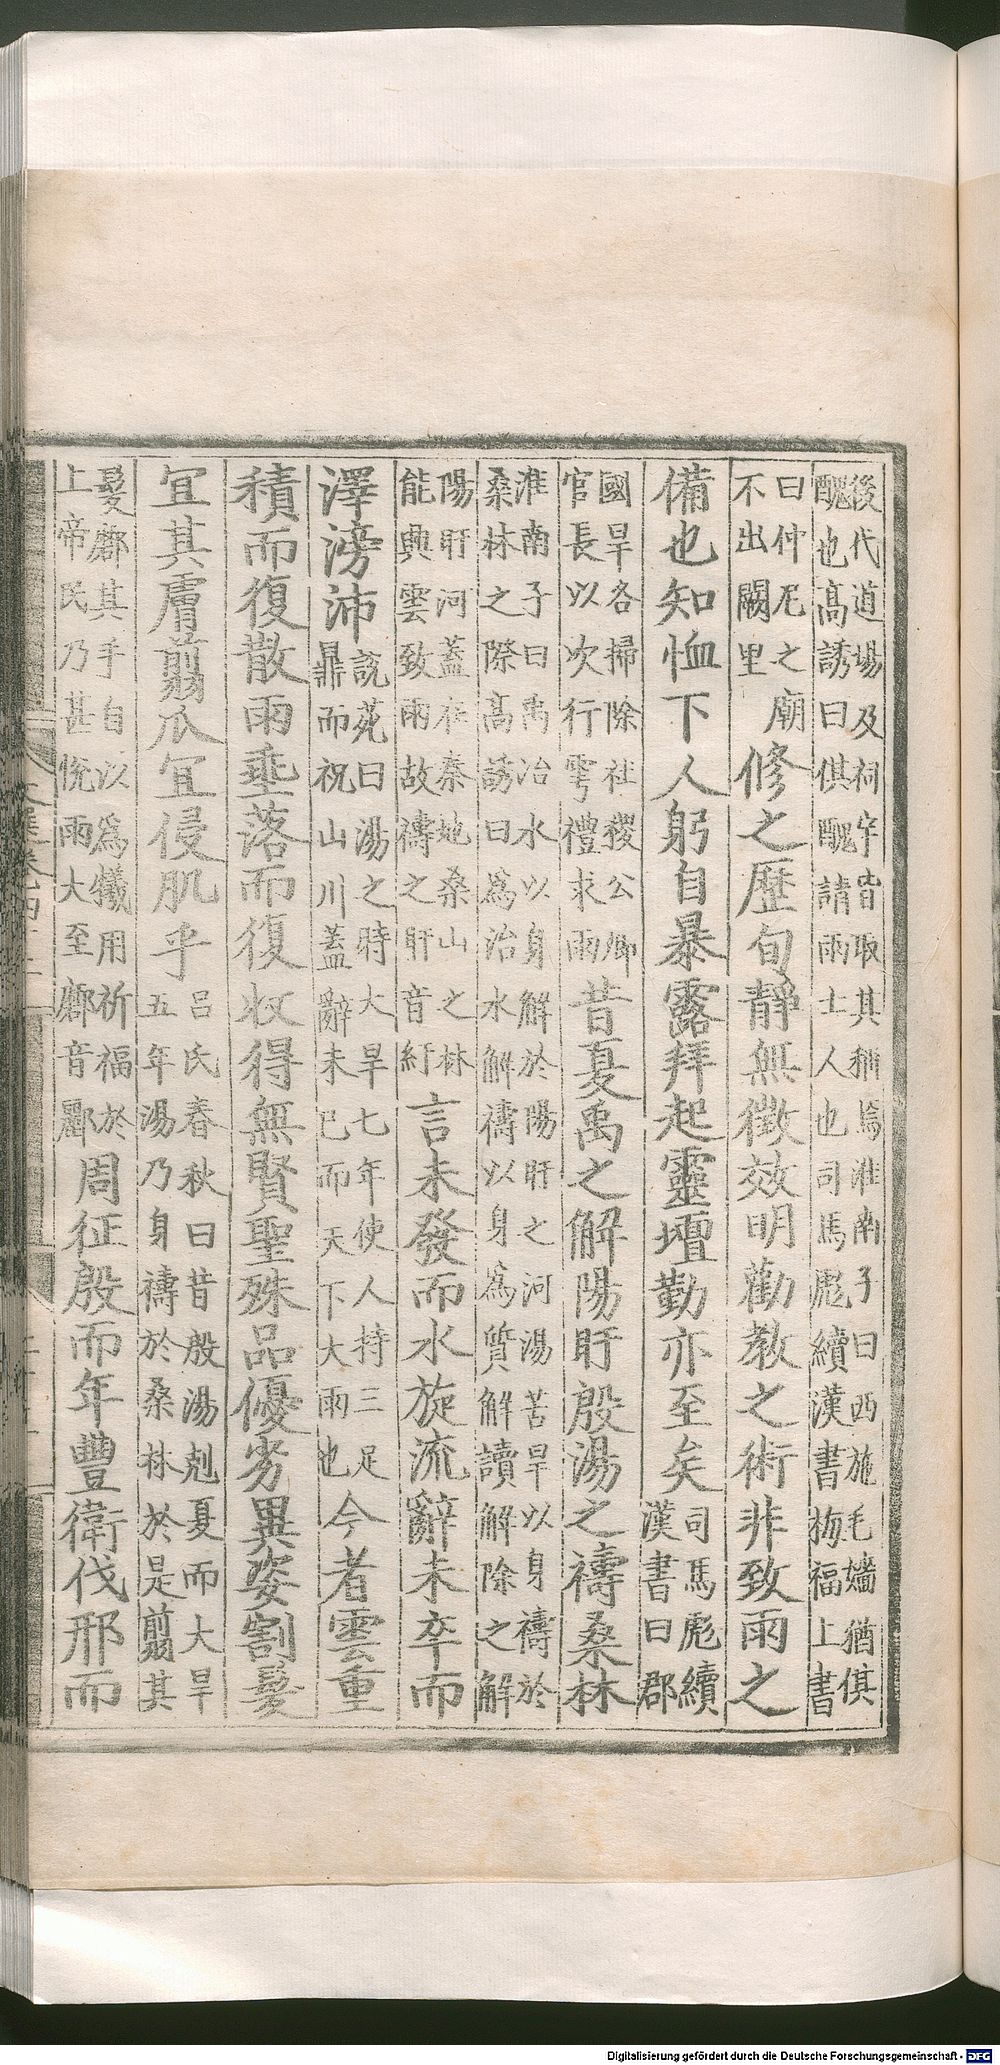 後代道場及祠宇皆取其稱焉淮南子曰西施毛嬙猶倛
醜也高誘曰倛醜請雨士人也司馬彪續漢書梅福上書
曰仲尼之廟
不出闕里
修之歷旬靜無徵效明勸教之術非致雨之
備也知恤下人躬自暴露拜起靈壇勤亦至矣
司馬彪續
漢書曰郡
國旱各掃除社稷公卿
官長以次行雩禮求雨
昔夏禹之解陽盱殷湯之禱桑林
淮南子曰禹治水以身解於陽盱之河湯苦旱以身禱於
桑林之際高誘曰爲治水解禱以身爲質解讀解除之解
陽盱河蓋在秦地桑山之林
能興雲致雨故禱之盱音紆
言未發而水旋流辭未卒而
澤滂沛
說苑曰湯之時大旱七年使人持三足
鼎而祝山川蓋辭未已而天下大雨也
今者雲重
積而復散雨垂落而復收得無賢聖殊品優劣異姿割髮
宜其膚剪爪宜侵肌乎
呂氏春秋曰昔殷湯剋夏而大旱
五年湯乃身禱於桑林於是剪其
髮其手自以爲犧用祈福於
上帝民乃甚悅雨大至音酈
周征殷而年豐衛伐邢而
Digitalisierung gefördert durch die Deutsche Forschungsgemeinschaft - DFG